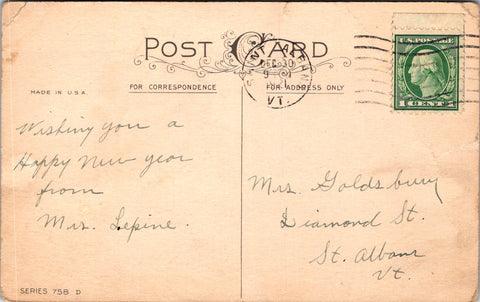 POST CARD
MADE IN U.S.A.
FOR CORRESPONDENCE
FOR ADDRESS ONLY
DEC 30
VT.
U.S. POSTAGE
1 CENT 1
Wishing you a
Happy New year
from
Mrs. Lepine.
Mrs. Goldsbury
Diamond St.
St. Albans
Vt.
SERIES 758 D